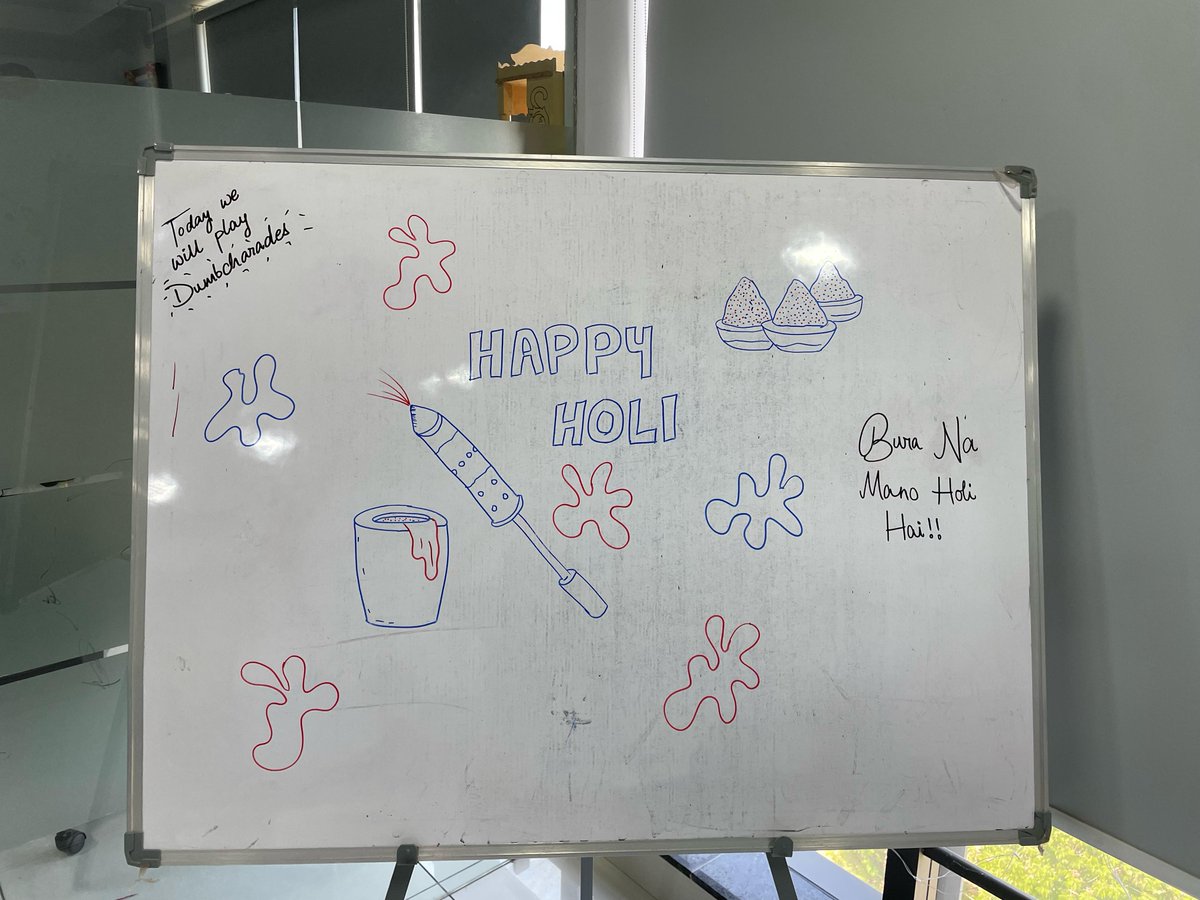 Today we
will play
Dumbcharades
HAPPY
HOLI
Bura Na
Mano Holi
Hai!!